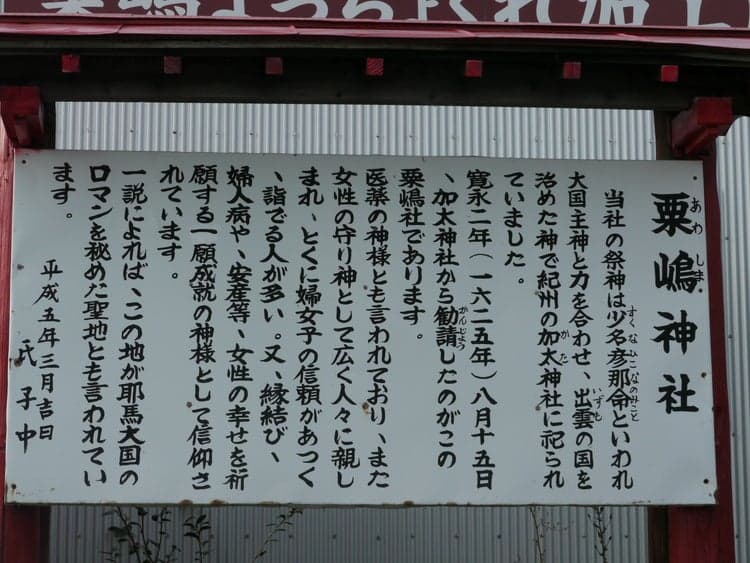 粟嶋神社
あわしま
当社の祭神は少名彦那命といわれ
すくなひこなのみこと
大国主神と力を合わせ、出雲の国を
いずも
治めた神で紀州の加太神社に祀られ
かた
ていました。
寛永二年(一六二五年)八月十五日
、加太神社から勧請したのがこの
かんじょう
粟嶋社であります。
医薬の神様とも言われており、また
女性の守り神として広く人々に親し
まれ、とくに婦女子の信頼があつく
、詣でる人が多い。又、縁結び、
婦人病や、安産等、女性の幸せを祈
願する一願成就の神様として信仰さ
れています。
一説によれば、この地が耶馬大国の
ロマンを秘めた聖地とも言われてい
ます。
平成五年三月吉日
氏子中